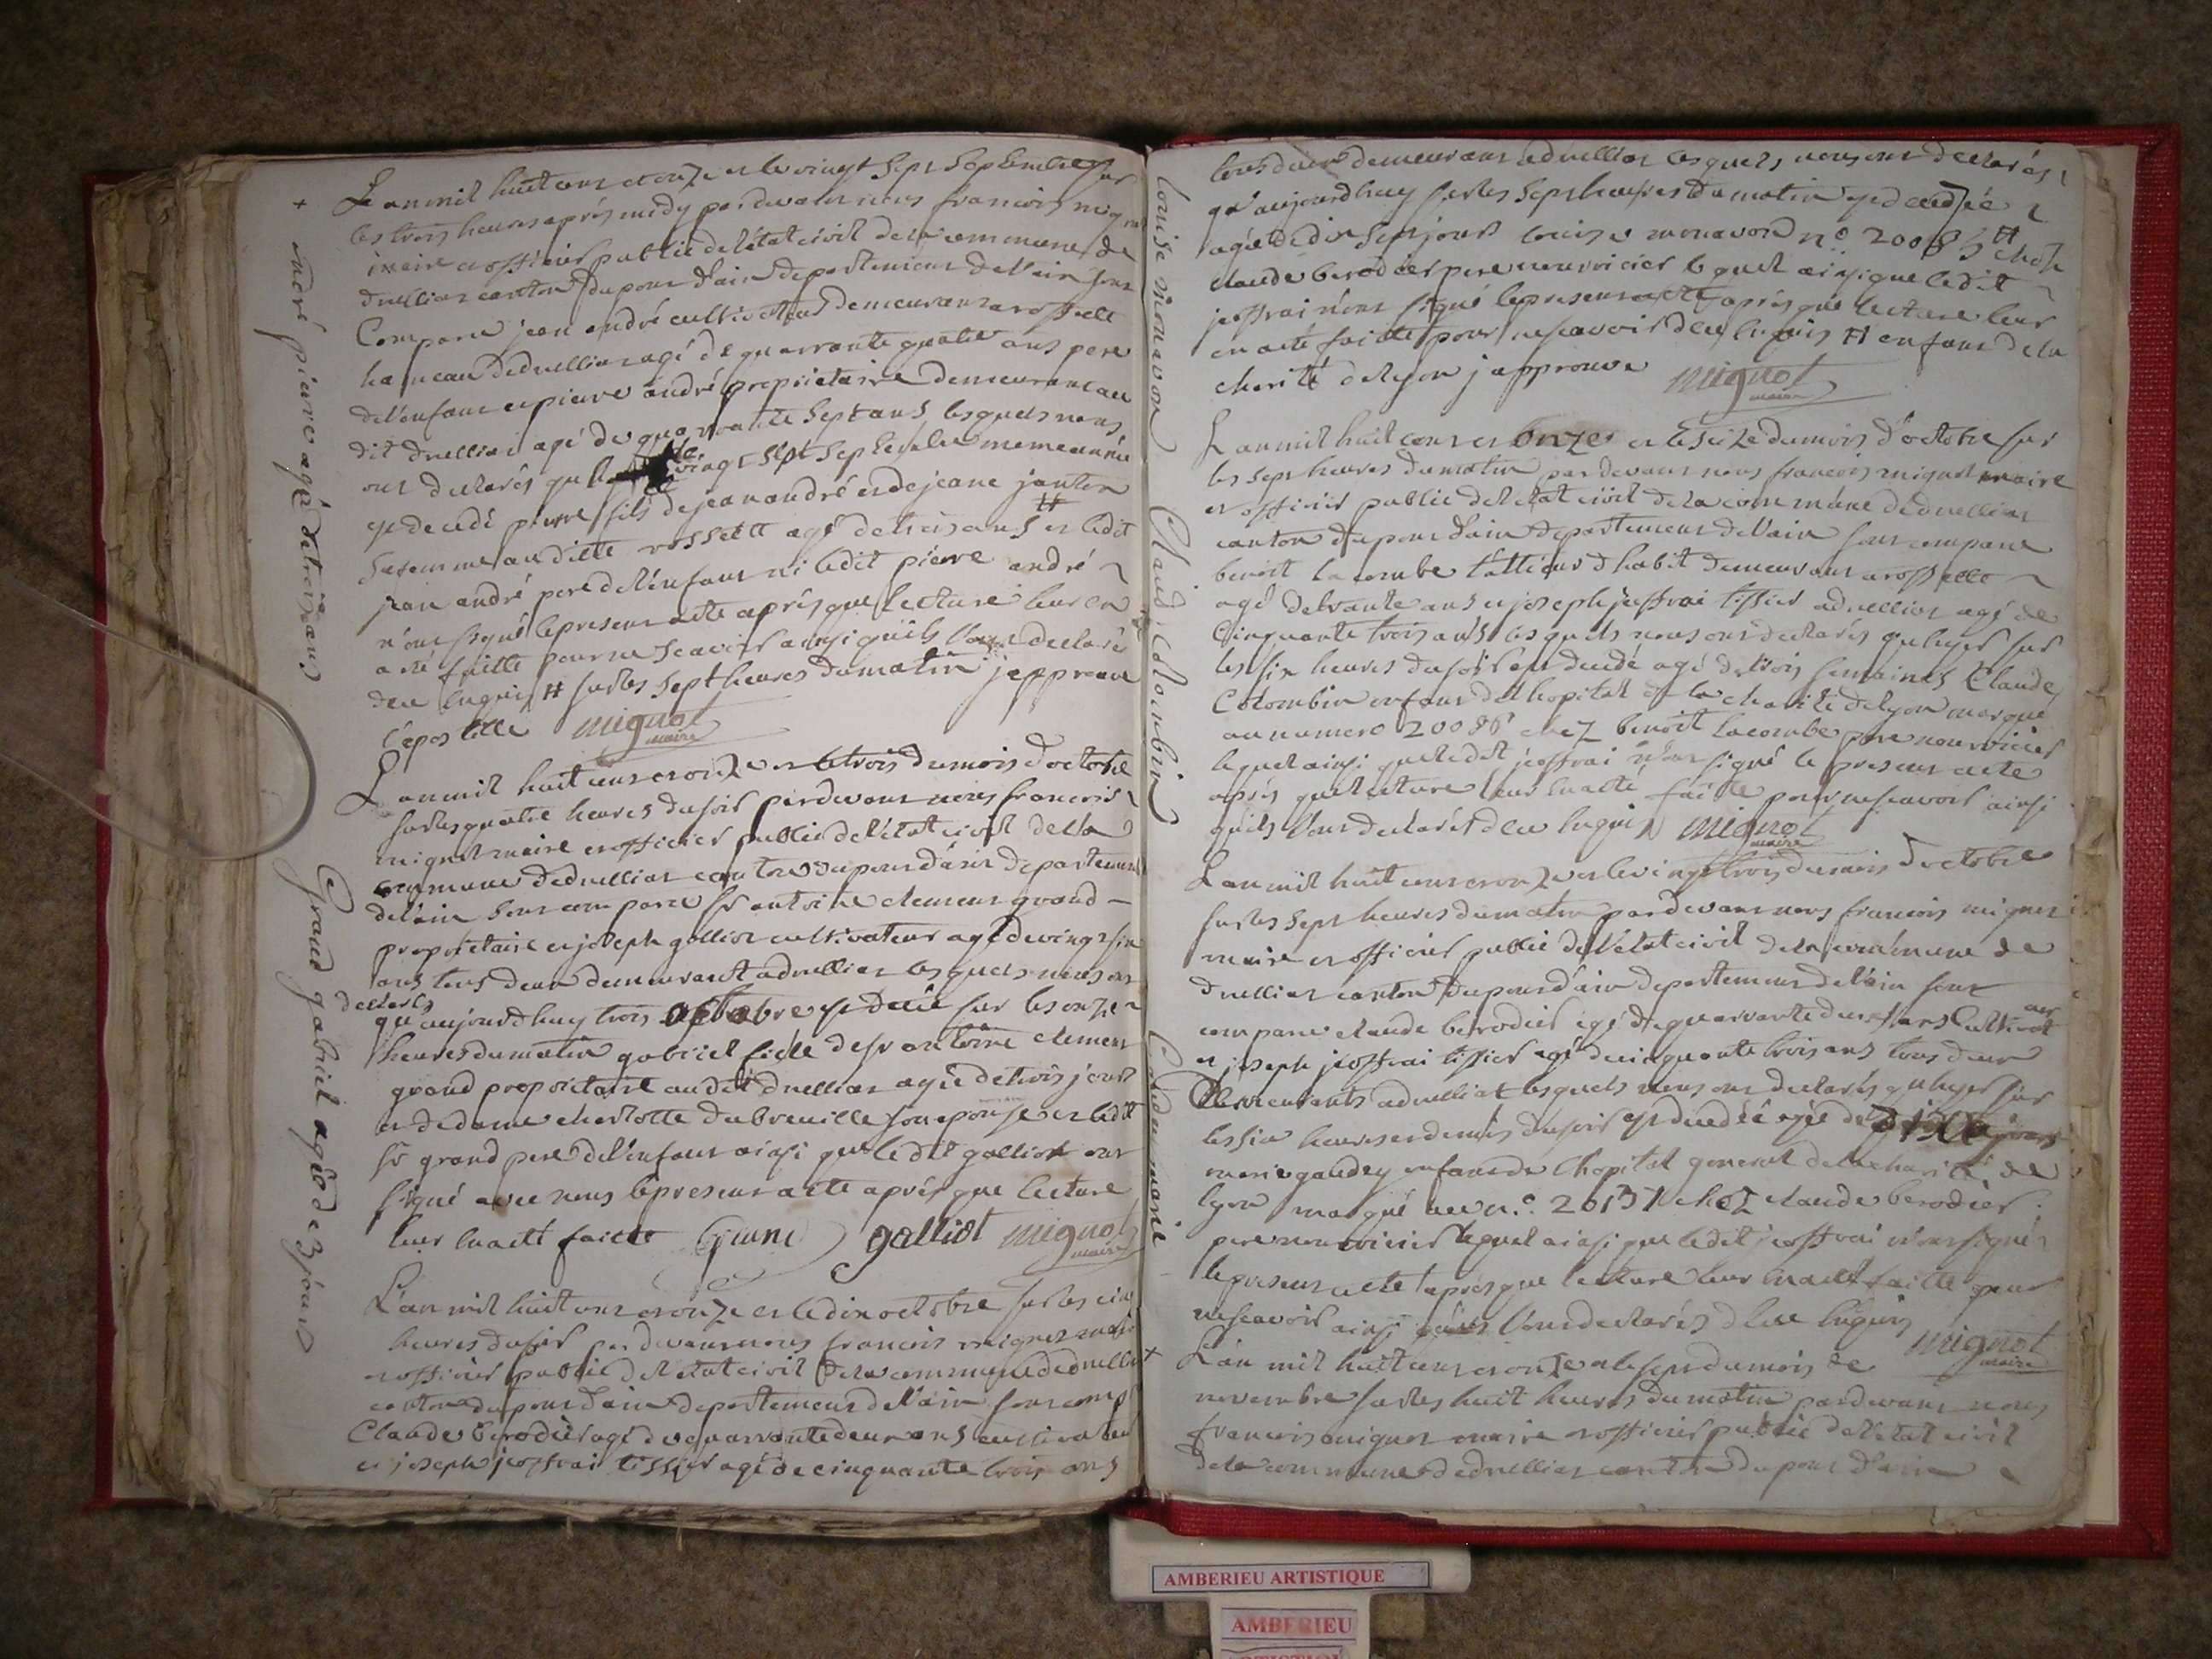 L an mil huit cent et onze et le vingt sept septembre sur
les trois heures aprés midy par devant nous francois mignot
maire et officier public de l'état civil de la commune de
druilliat canton du pont d'ain departement de l'ain sont
Comparu jean andré cultivateur demeurant a rossette
hameau de druilliat agé de quarrante quatre ans pere
de l'enfant et pierre andré propriétaire demeurant au
dit druilliat agé de quarrante sept ans lesquels nous
ont declarés que le vingt sept septembre meme année
est decedé pierre fils de jean andré et de jeane janton
sa femme au dit rossette agé de trois ans # et ledit
jean andré pere de l'enfant ni ledit pierre andré
n'ont signé le present acte aprés que lecture leur en
a eté faitte pour ne scavoir ainsi quils l'ont declaré
de ce enquis # sur les sept heures du matin j'approuve
l'apostille mignot
maire
L an mil huit cent et onze et le trois du mois d'octobre
sur les quatre heures du soir par devant nous francois
mignot maire et officier public de l'état civil de la
commune de druilliat canton du pont d'ain departement
de l'ain sont comparu sr antoine clement grand
proprietaire et joseph galliot cultivateur agé de vingt six
ans tous deux demeurant a druilliat lesquels nous ont
declarés
qu'aujourd'huy trois octobre est decedé sur les onze
heures du matin gabriel fils de sr antoine clement
grand proprietaire au dit druilliat agé de trois jours
et de dame charlotte dubreuille son epouse et ledit
sr grand pere de l'enfant ainsi que ledit galliot ont
signé avec nous le present acte aprés que lecture
leur en a eté faitte Grand galliot mignot
maire
L'an mil huit cent et onze et le dix octobre sur les cinq
heures du soir par devant nous francois mignot maire
et officier public de l'état civil de la commune de druilliat
canton du pont d'ain departement de l'ain sont comp
Claude berodier agé de quarrante deux ans cultivateur
et joseph jeoffrai tissier agé de cinquante trois ans
+ andré pierre agé de trois ans
Grand gabriel agé de 3 jours
tous deux demeurant a druilliat lesquels nous ont declarés
qu'aujourd'huy sur les sept heures du matin est decedée
agée de dix sept jours louise monavon n.o 20083 # chez
claude berodier pere nourricier lequel ainsi que ledit
jeoffrai n'ont signé le present acte aprés que lecture leur
en a eté faitte pour ne scavoir de ce enquis # enfant de la
charité de lyon j'approuve mignot
maire
L an mil huit cent et onze et le seize du mois d'octobre sur
les sept heures du matin par devant nous francois mignot maire
et officier public de l'état civil de la commune de druilliat
canton du pont d'ain departement de l'ain sont comparu
benoit lacombe tallieur d'habit demeurant a rossette
agé de trante ans et joseph jeoffrai tissier a druilliat agé de
Cinquante trois ans lesquels nous ont declarés que hyer sur
les six heures du soir est decedé agé de trois semaines Claude
Colombin enfant de l'hopital de la charité de lyon marqué
au numero 20086 chez benoit lacombe pere nourricier
lequel ainsi que ledit jeoffrai n'ont signé le present acte
aprés que lecture leur en a eté faitte pour ne scavoir ainsi
quils l'ont declarés de ce enquis mignot
maire
L an mil huit cent et onze et le vingt trois du mois d'octobre
sur les sept heures du matin par devant nous francois mignot
maire et officier public de l'état civil de la commune de
druilliat canton du pont d'ain departement de l'ain sont
comparu claude berodier agé de quarrante deux ans Cultivateur
et joseph jeoffrai tissier agé de cinquante trois ans tous deux
demeurants a druilliat lesquels nous ont declarés que hyer sur
les six heures et demies du soir est decedée agée de dix jours
marie gaudey enfant de l'hopital general de la charité de
lyon marqué au n.o 20131 chez claude berodier
pere nourricier lequel ainsi que ledit jeoffrai n'ont signé
le present acte aprés que lecture leur en a eté faitte pour
ne scavoir ainsi quils l'ont declarés de ce enquis mignot
maire
L'an mil huit cent et onze et le sept du mois de
novembre sur les huit heures du matin par devant nous
francois mignot maire et officier public de l'état civil
de la commune de druilliat canton du pont d'ain
Louise monavon
Claude Colombin
Gaudey marie
+
AMBERIEU ARTISTIQUE
AMBERIEU